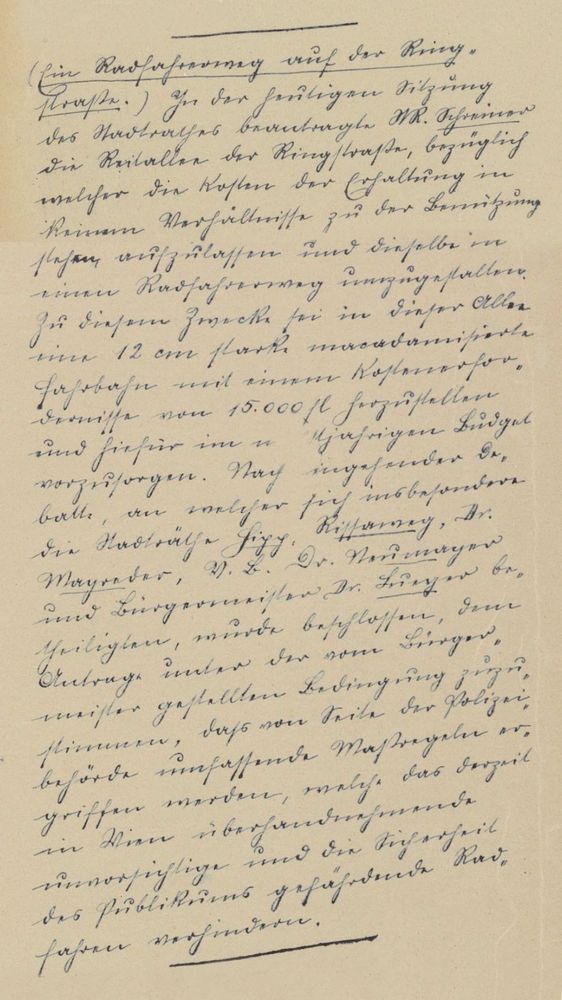 (Ein Radfahrerweg auf der Ring-
straße.) In der heutigen Sitzung
des Stadtrathes beantragte StR. Schreiner
die Reitallee der Ringstraße, bezüglich
welcher die Kosten der Erhaltung in
keinem Verhältnisse zu der Benützung
stehen, aufzulassen und dieselbe in
einen Radfahrerweg umzugestalten.
Zu diesem Zwecke sei in dieser Allee
eine 12 cm starke macadamisierte
Fahrbahn mit einem Kostenerfor-
dernisse von 15.000 fl herzustellen
und hiefür im n  stjährigen Budget
vorzusorgen. Nach  ingehender De-
batte, an welcher sich insbesondere
die Stadträthe Hipp, Rissaweg, Dr.
Mayreder, V. B. Dr. Neumayer
und Bürgermeister Dr. Lueger be-
theiligten, wurde beschlossen, dem
Antrage unter der vom Bürger-
meister gestellten Bedingung zuzu-
stimmen, daß von Seite der Polizei-
behörde umfassende Maßregeln er-
griffen werden, welche das derzeit
in Wien überhandnehmende
unvorsichtige und die Sicherheit
des Publikums gefährdende Rad-
fahren verhindern.